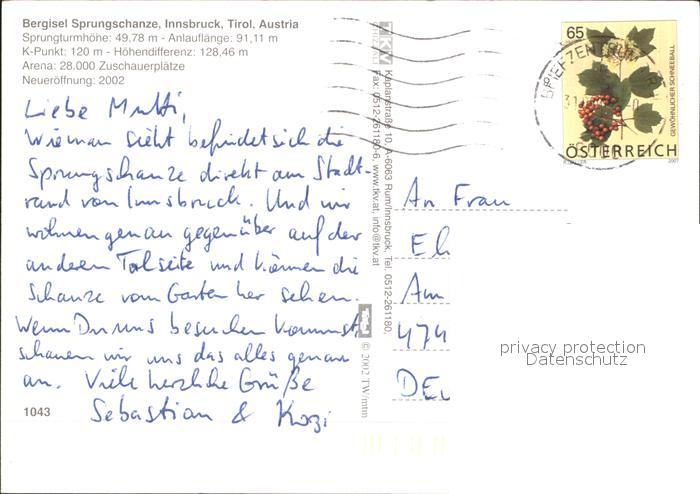 Bergisel Sprungschanze, Innsbruck, Tirol, Austria
Sprungturmhöhe: 49,78 m - Anlauflänge: 91,11 m
K-Punkt: 120 m - Höhendifferenz: 128,46 m
Arena: 28.000 Zuschauerplätze
Neueröffnung: 2002
Liebe Mutti,
Wie man sieht befindet sich die
Sprungschanze direkt am Stadt-
rand von Innsbruck. Und wir
wohnen genau gegenüber auf der
anderen Talseite und können die
Schanze vom Garten her sehen.
Wenn Du uns besuchen kommst
schauen wir uns das alles genau
an. Viele herzliche Grüße
Sebastian &
1043
Kaplanstraße 10, A-6063 Rum/Innsbruck, Tel. 0512-261180,
Fax: 0512-261180-6, www.kv.at, info@kv.at
Tirol
© 2002 TW/mtm
65
GEWÖHNLICHER SCHNEEBALL
ÖSTERREICH
2007
BRIEFZENTRUM
An Frau
El
Am
474
DEU
privacy protection
Datenschutz